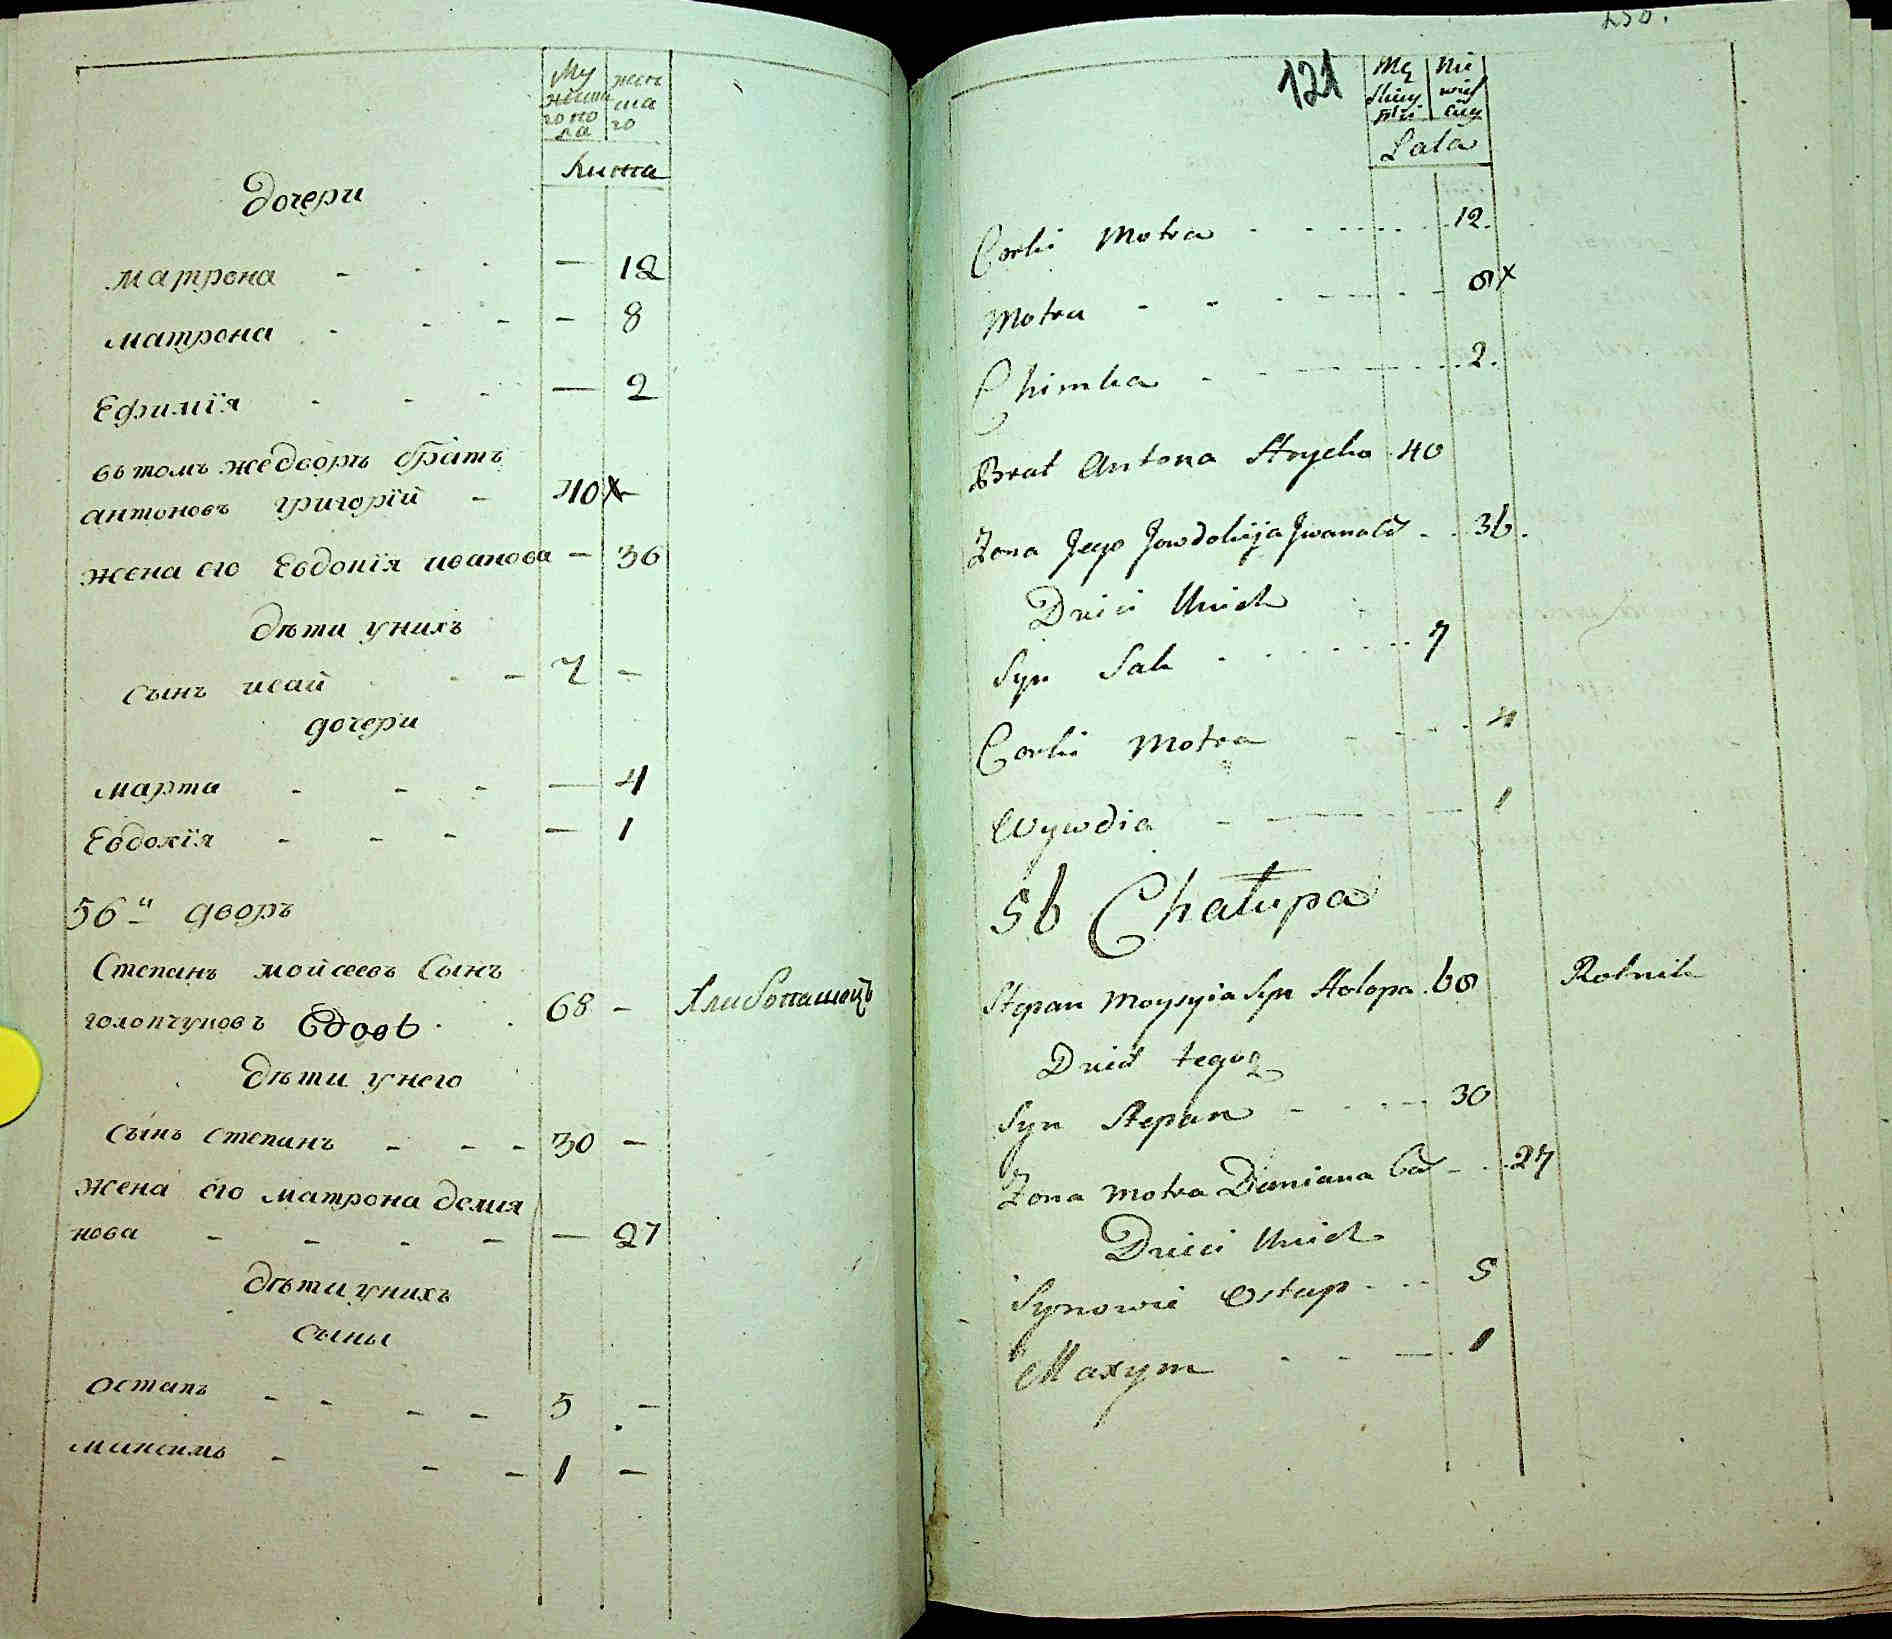 Му жеск
жеска ска
го по го
ла
Лита
Дочери
матрона - - - — 12
матрона - - - - 8
Ефимїя - - - — 2
вътомъ жедворѣ братъ
антоновъ григорїй - 40 x -
жена его Евдокїя иванова — 36
дѣти унихъ
сынъ исай - - 7 -
дочери
марта - - - — 4
Евдокїя - - - — 1
56й дворъ
Степанъ мойсеевъ сынъ
голопчуковъ вдовъ . . 68 - Хлибопашецъ
дѣти унего
сынъ степанъ - - - 30 -
жена его матрона демия
нова - - - - — 27
дѣти унихъ
сыны
остапъ - - - - 5 -
максимъ - - - 1 -
121
Lata
Corki Motra 12.
Motra 8 x
Chimka 2.
Brat Antona Hrycko 40
Zona Jego Jowdokija Jwanowa 36.
Dzieci Unich
Syn Sak 7
Corki Motra 4
Wywdia 1
56 Chałupa
Stepan Moysyia Syn Holopa 68 Rolnik
Dzieci tegoż
Syn Stepan 30
Zona Motra Demiana Ca 27
Dzieci Unich
Synowie Ostap 5
Maxym 1